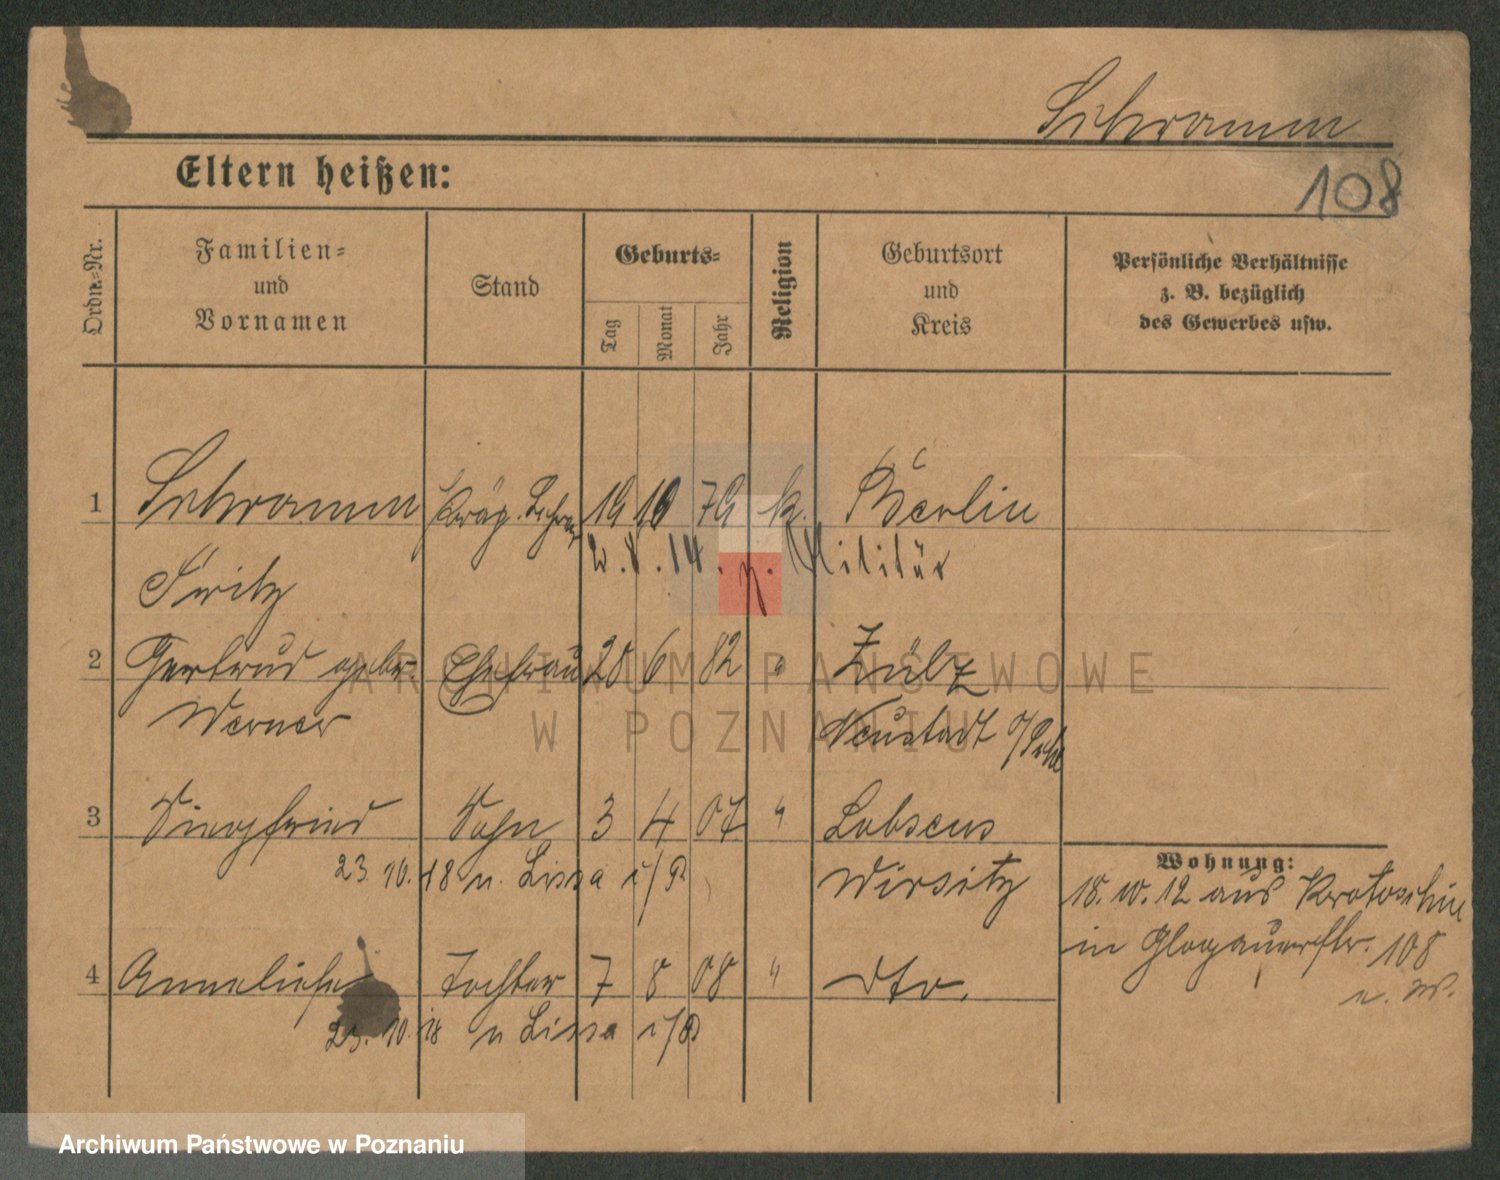 Schramm
108
Eltern heißen:
Ordn.-Nr.
Familien- und Vornamen
Stand
Geburts-
Tag
Monat
Jahr
Religion
Geburtsort und Kreis
Persönliche Verhältnisse z. B. bezüglich des Gewerbes usw.
1 Schramm Präp. Lehrer 19 10 79 k. Berlin
Fritz 2.8.14. z. Militär
2 Gertrud gebr. Ehefrau 20 6 82 " Zülz
Werner Neustadt
3 Siegfried Sohn 3 4 07 " Lobsens
23.10.18 n. Lissa i/P Wirsitz
Wohnung:
18.10.12 aus Krotoschin
in Glogauerstr. 108
4 Anneliese Tochter 7 8 08 " dto.
23.10.18 n Lissa i/P
ARCHIWUM PAŃSTWOWE
W POZNANIU
Archiwum Państwowe w Poznaniu